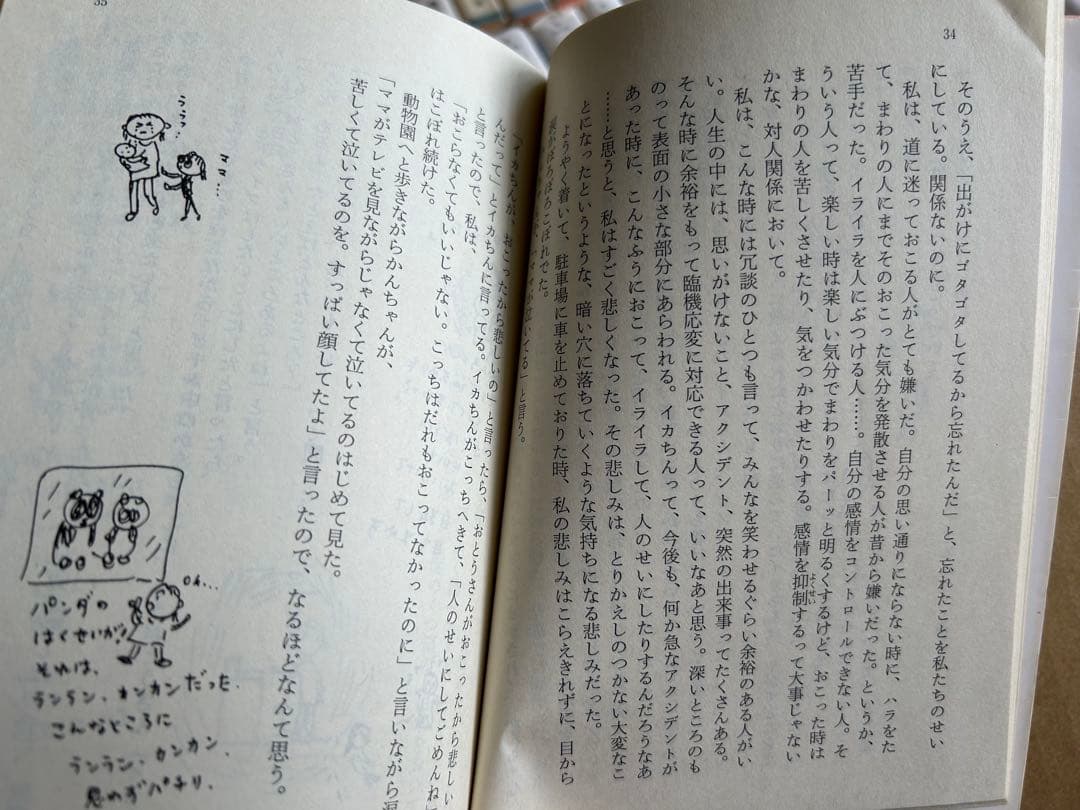 34
そのうえ、「出がけにゴタゴタしてるから忘れたんだ」と、忘れたことを私たちのせい
にしている。関係ないのに。
私は、道に迷っておこる人がとても嫌いだ。自分の思い通りにならない時に、ハラをた
て、まわりの人にまでそのおこった気分を発散させる人が昔から嫌いだった。というか、
苦手だった。イライラを人にぶつける人……。自分の感情をコントロールできない人。そ
ういう人って、楽しい時は楽しい気分でまわりをパーッと明るくするけど、おこった時は
まわりの人を苦しくさせたり、気をつかわせたりする。感情を抑制するって大事じゃない
よくせい
かな、対人関係において。
私は、こんな時には冗談のひとつも言って、みんなを笑わせるぐらい余裕のある人がい
い。人生の中には、思いがけないこと、アクシデント、突然の出来事ってたくさんある。
そんな時に余裕をもって臨機応変に対応できる人って、いいなあと思う。深いところのも
のって表面の小さな部分にあらわれる。イカちんって、今後も、何か急なアクシデントが
あった時に、こんなふうにおこって、イライラして、人のせいにしたりするんだろうなあ
……と思うと、私はすごく悲しくなった。その悲しみは、とりかえしのつかない大変なこ
とになったというような、暗い穴に落ちていくような気持ちになる悲しみだった。
ようやく着いて、駐車場に車を止めておりた時、私の悲しみはこらえきれずに、目から
涙がぼろぼろこぼれでた。
「ママが泣いてる」と言う。
35
「イカちんが、おこったから悲しいの」と言ったら、「おとうさんがおこったから悲しい
んだって」とイカちんに言ってる。イカちんがこっちへきて、「人のせいにしてごめんね」
と言ったので、私は、
「おこらなくてもいいじゃない。こっちはだれもおこってなかったのに」と言いながら涙
はこぼれ続けた。
動物園へと歩きながらかんちゃんが、
「ママがテレビを見ながらじゃなくて泣いてるのはじめて見た。
苦しくて泣いてるのを。すっぱい顔してたよ」と言ったので、
なるほどなんて思う。
ううっ
ママ…
Oh…
パンダの
はくせいが!
それは、
ランラン、カンカンだった.
こんなところに
ランラン、カンカン、
思わずパチリ、